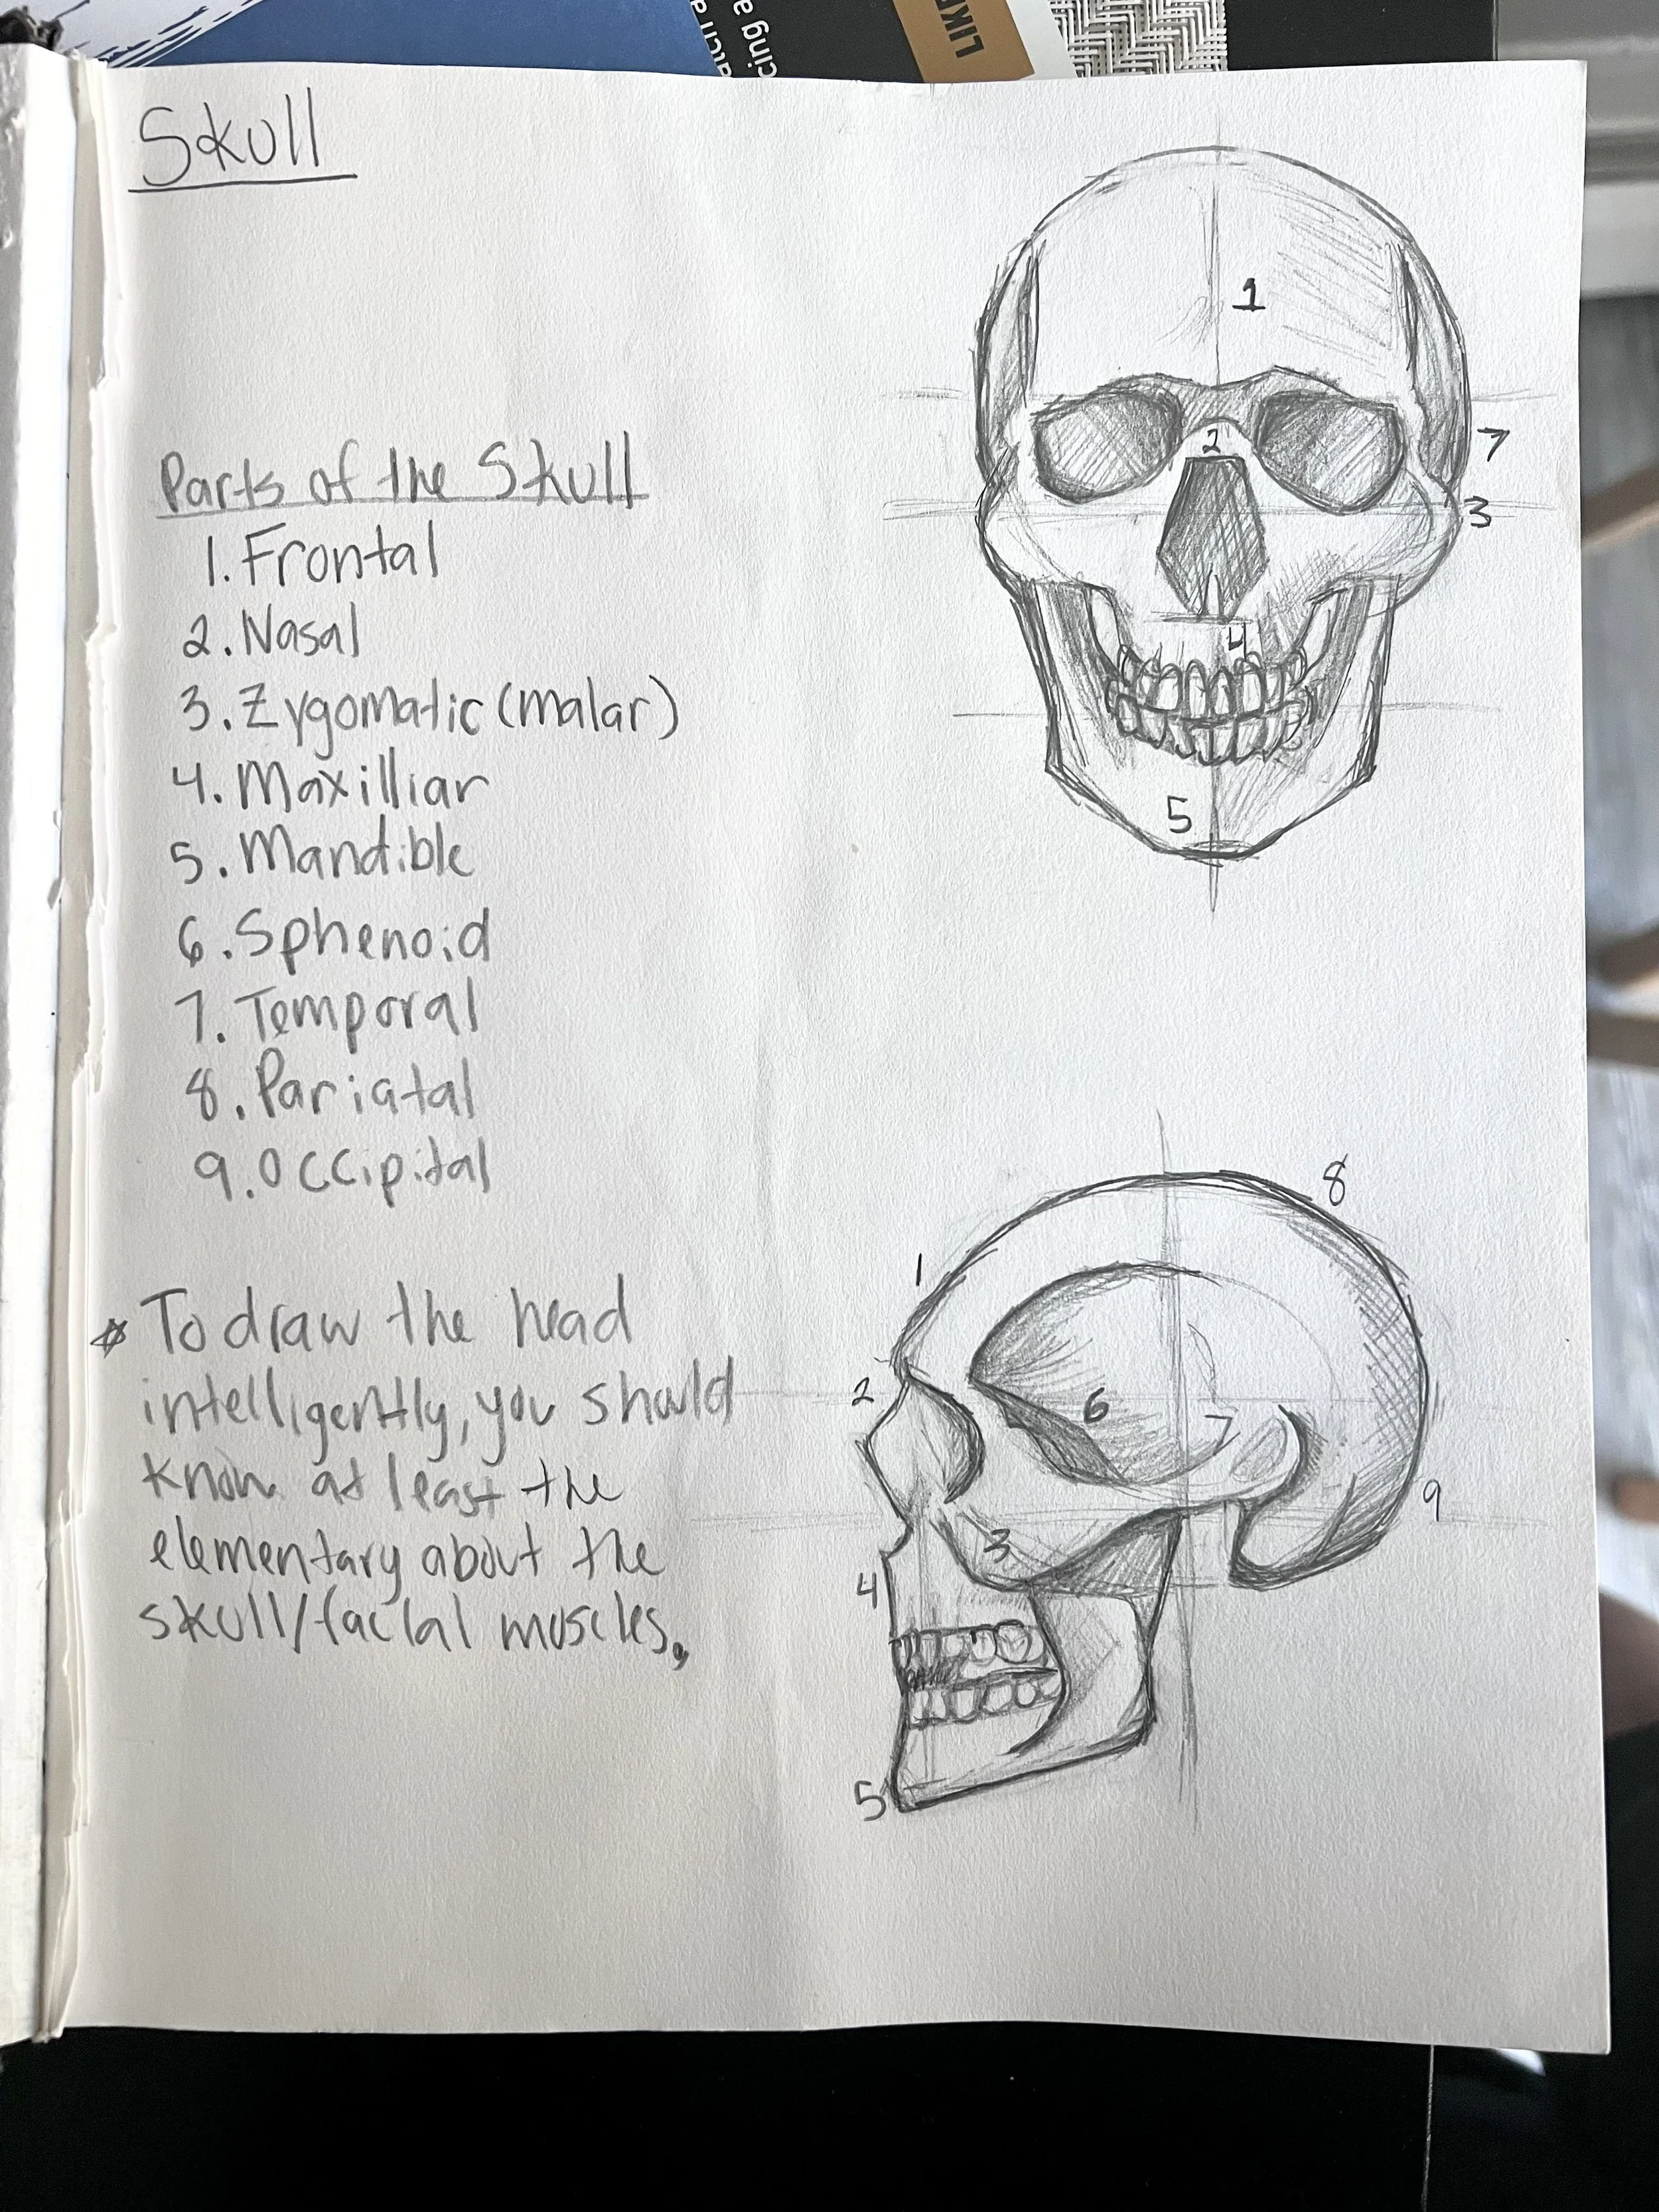 LIKE
cing a
atch a
Skull
Parts of the Skull
1. Frontal
2. Nasal
3. Zygomatic (malar)
4. Maxilliar
5. Mandible
6. Sphenoid
7. Temporal
8. Pariatal
9. Occipital
* To draw the head
intelligently, you should
know at least the
elementary about the
skull/facial muscles.
1
2
7
3
4
5
8
1
2
6
7
9
3
4
5